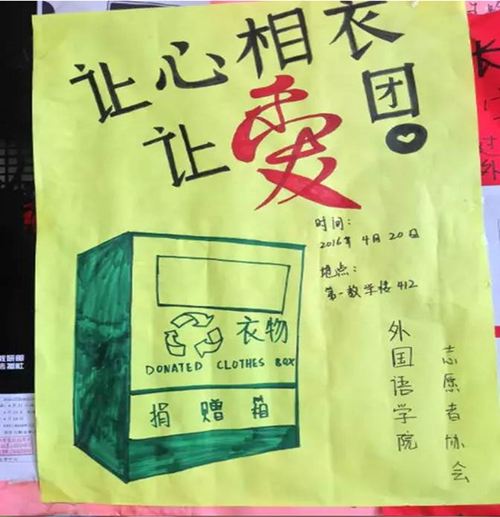 让心相衣
让爱团
时间：
2016年 4月 20日
地点：
第一教学楼 412
衣物
DONATED CLOTHES BOX
捐赠箱
外国语学院
志愿者协会
长
过
外